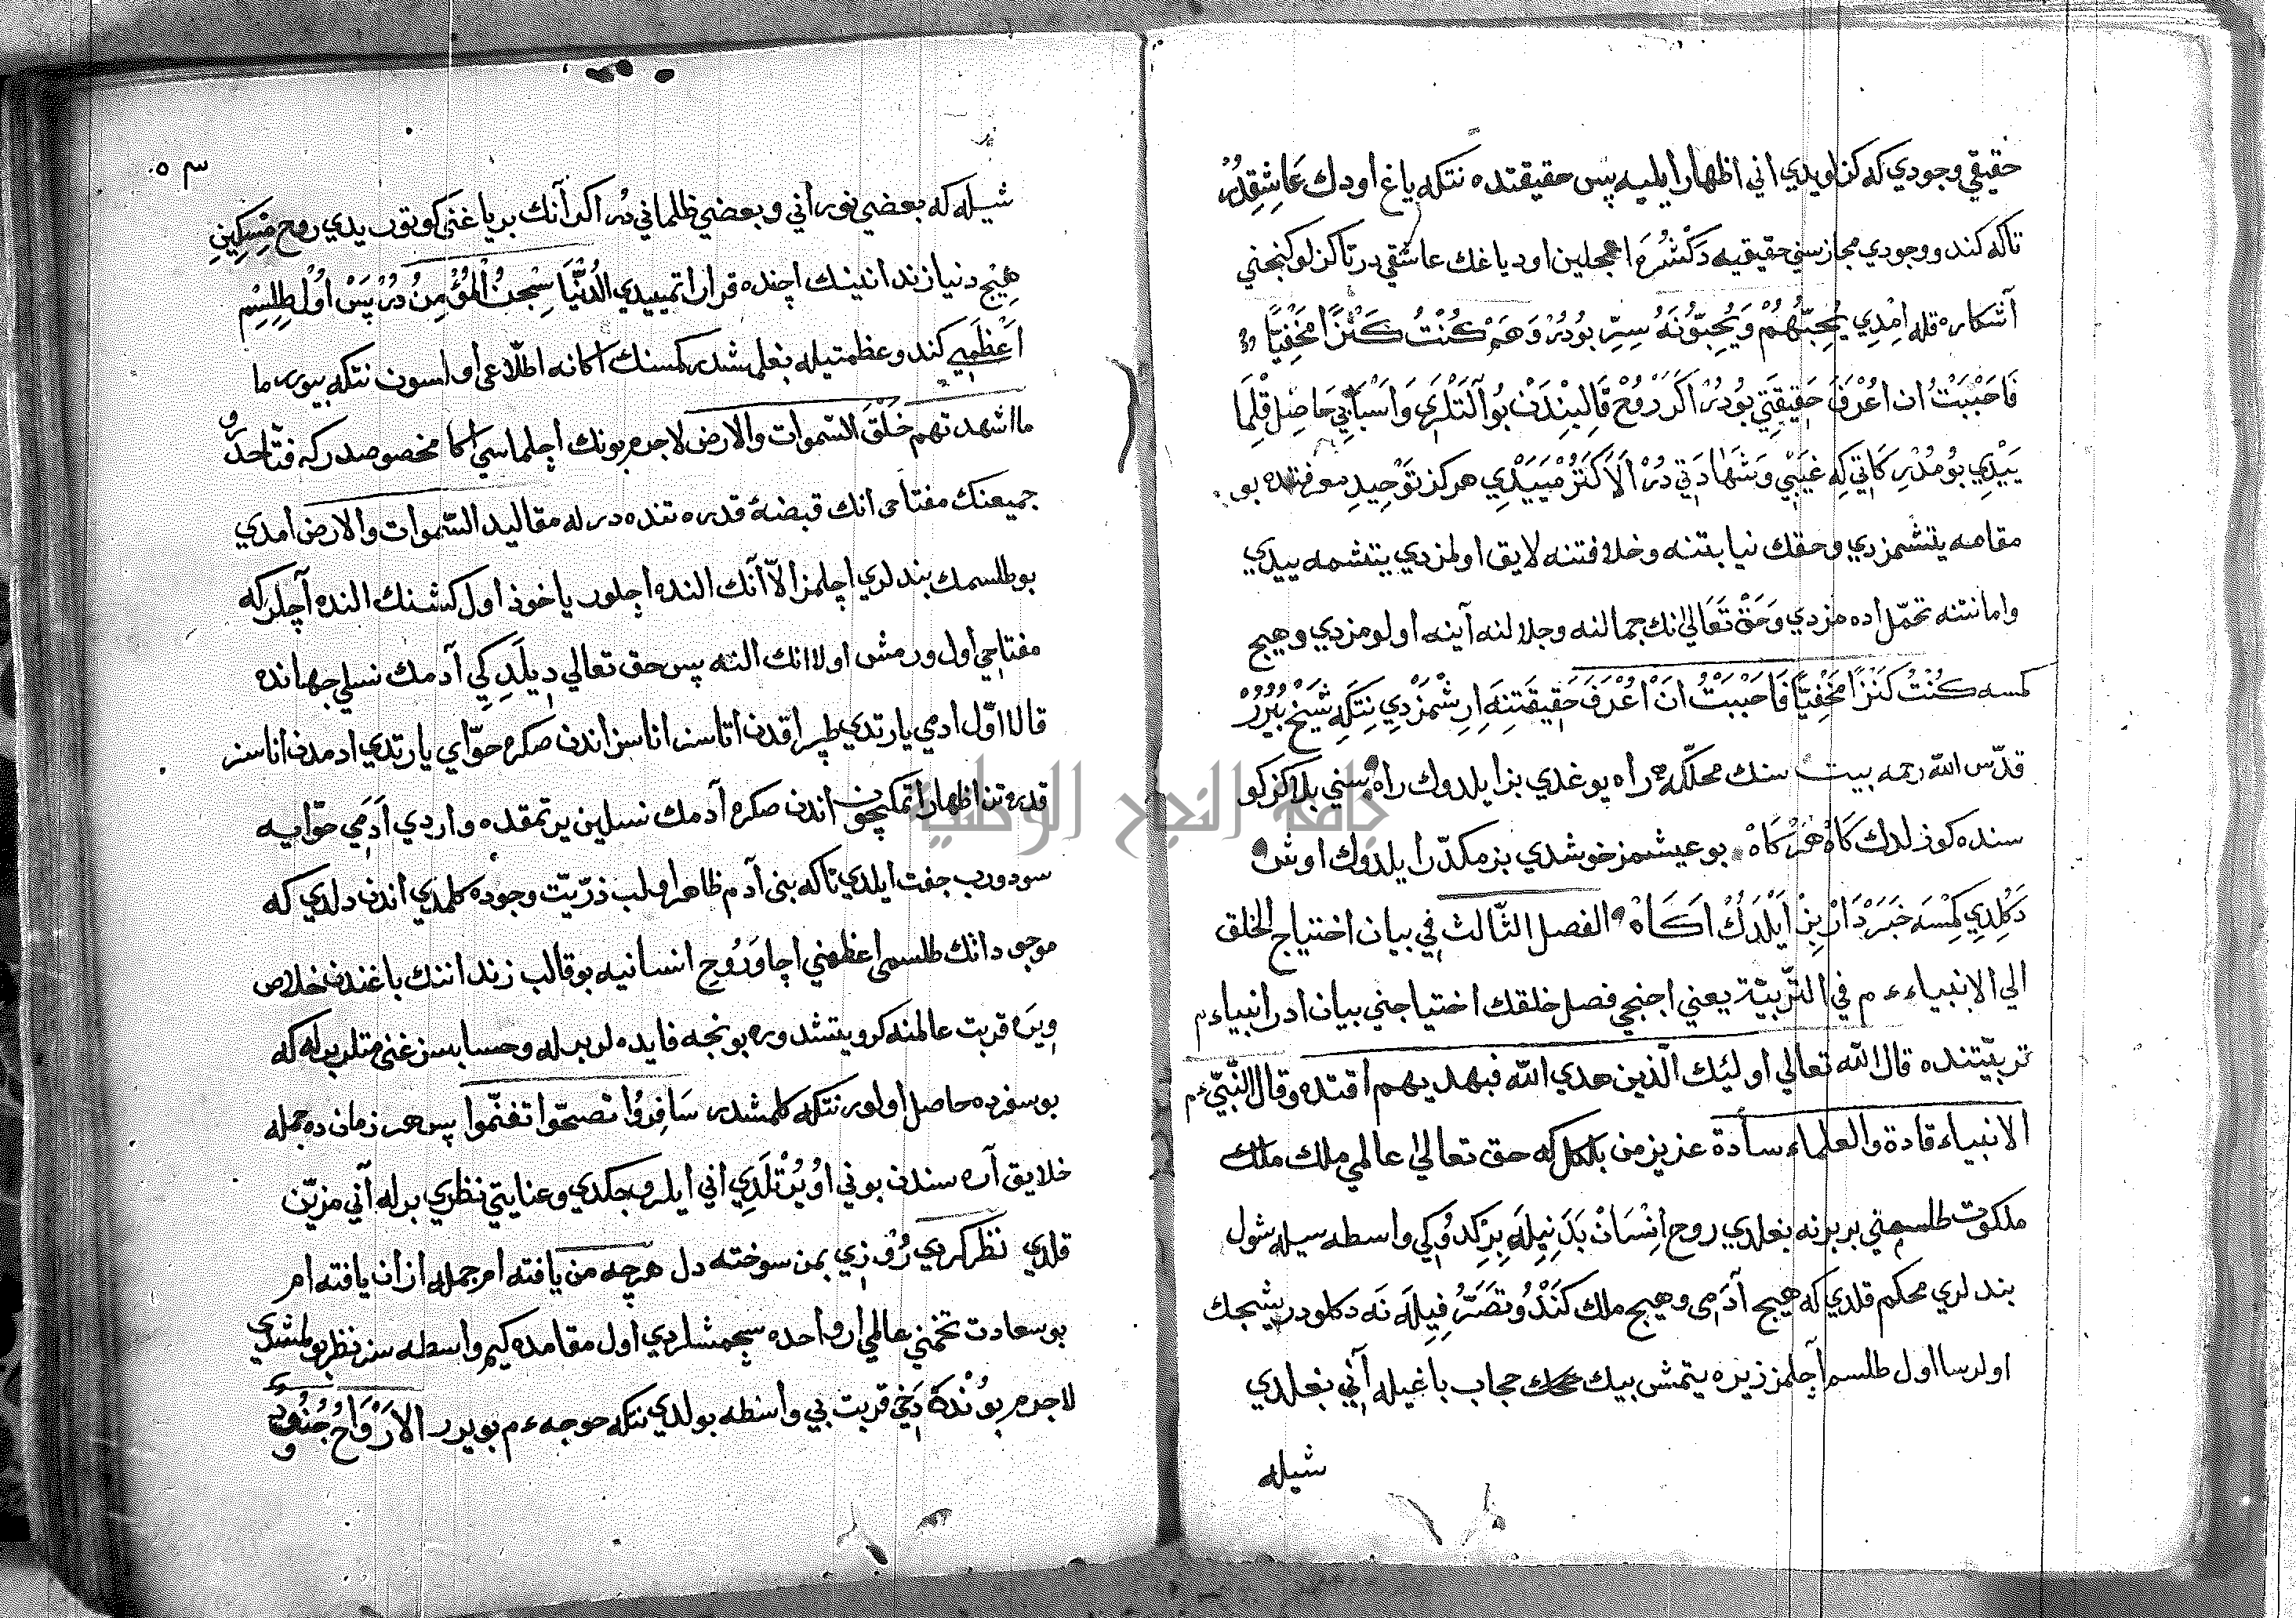 حقيقي وجودي كه كزلويدي اني اظهار ايليه پس حقيقتده نتكه ياغ اودك عاشِقِدُرْ
تاكه كندو وجودي مجازسني حقيقيه دَكْشُرَه اود ياغك عاشقي در تا كزلو كنجني
آشكاره قله اِمْدِي يُحِبُّهُمْ وَيُحِبُّونَهُ سِرِّ بودُرْ وَهَمْ كُنْتُ كَنْزًا مَخْفِيًّا
فَاَحْبَبْتُ ان اُعْرَفَ حَقِيقَتِي بودُرْ اَكَرْ رُوحْ قَالِبِنْدَنْ بُو آلَتْلَرِي وَاَسْبَابِي حَاصِلْ قِلْمَا
يَيْدِي بو مُدْرِكَاتِي كِه غَيْبِي وَشَهَادَتِي دُرْ اَلَاكَنَزْمَيَيْدِي هركز تَوْحِيدِ معرفتده بو
مقامه يتشمزدي وحقك نيابتنه وخلافتنه لايق اولمزدي يتشمه ييدي
وامانتنه تحمّل اده مزدي وَحَقْ تَعَالىٰ نك جمالنه وجلالنه آينه اولومزدي وهيج
كمسه كُنْتُ كَنْزًا مَخْفِيًّا فَاَحْبَبْتُ اَنْ اُعْرَفَ حَقِيقَتِنَه اِرِشْمَزْدِي نِتَكِه شَيْخْ بُيُرُرْ
قدّس الله رحمه بيت سنك محلّكه راه يوغدي بز ايلدوك راه سني بلا كزكو
سنده كوزلدك كَاهْ هَرْكَاهْ بو عيشمز خوشدي بز مكدّر ايلدوك اوش
دَكِلدِي كِمْسَه خَبَرْدَارْ بِزْ اَيْلَدُكْ اَكَاهْ الفصل الثّالث في بيان احتياج الخلق
الي الانبياء ءم في التّربيّة يعني اجنجي فصل خلقك احتياجني بيان ادر انبياء ءم
تربيّتنده قال الله تعالي اولئك الّذين هدي الله فبهديهم اقتده وقال النّبيّ ءم
الانبياء قادة والعلماء سادة عزيز من بلكل كه حق تعالىٰ عالمي ملك ملك
ملكوت طلسمني بربرنه بغلدي روح اِنْسَانْ بَدَنِيلَه بِرِكْدُوكي واسطه سيله شول
بندلري محكم قلدي كه هيج آدَمي وهيج ملك كَنْدُو تصَرُّفِيلَه نَه دكلو دريشجك
اولرسا اول طلسم آچلمز زيره يتمش بيك حجاب باغيله آني بغلدي
شيله
شيله كه بعضي نوراني و بعضي ظلماني دُر اكر آنك برياغني كوتورييدي روح مِسْكِينِ
هِيْچ دنيا زندانينك اچنده قرار اتميييدي اَلدُّنْيَا سِجْنُ الْمُؤْمِنْ دُرْ پَسْ اُولْ طِلِسْمِ
اَعْظَمِي كندو عظمتيله بغلمشدر كمسنك آكا نه اطّلاعي اولسون نتكه بيورر ما
ما اشهدتهم خَلْقَ السّموات والارض لاجرم بونك اچلماسي آكا مخصوصدر كه فتّاحدر و
جميعنك مفتاحي انك قبضهٔ قدرتنده در له مقاليد السّموات والارض امدي
بو طلسمك بندلري اچلمز الّا آنك النده اچلور ياخوذ اول كشنك النده آچلر كه
مفتاحي اول ورمش اولا انك النه پس حق تعالي دِيلَدِ كي آدمك نسلي جهانده
قالا اوّل ادمي يارتدي طپراقدن اتاسز اناسز اندن صكره حوّاي يارتدي ادمدن اناسز
قدرتن اظهار اتمكچون اندن صكره آدمك نسلين يرتمقده واردي اَدَمي حوّايه
سودورب جفت ايلدي تاكه بني آدم ظاهر اولب ذرّيّت وجوده كلمدي اندن دلدي كه
موجودانك طلسمي اعظمني اچا وَرُوحِ انسانيه بو قالب زندانتك باغندن خلاص
ويره قربت عالمنه كرو يتشدوره بونجه فايده لر برله وحسابسز غنيمتلر برله كه
بو سفرده حاصل اولور نتكه كلمشدر سَافِرُوا تصحّوا تغنّموا پس هر زمان ده جمله
خلايق آره سندن بوني اُويُرْتلَدِي اني ايلرو چكدي وعنايتي نظري برله آني مزيّن
قلدي نظر كردي رُوزِي بمن سوخته دل هرچه من يافته ام جمله ازان يافته ام
بو سعادت تخمني عالمي ارواحده سچمشلردي اول مقامده كيم واسطه سز نظر بولمشدي
لاجرم بوُنْدَه دَخي قربت بي واسطه بولدي نتكه خوجه ءم بويرر الاَرْوَاحُ جُنُودٌ